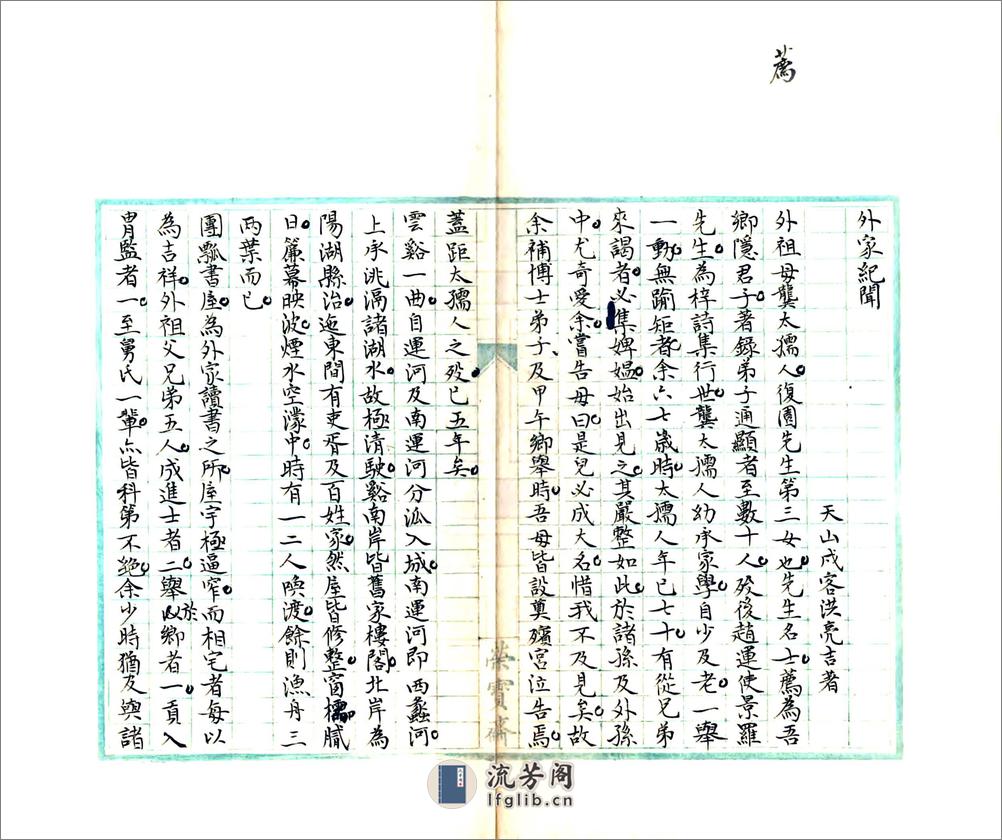 薦
外家紀聞
天山戍客洪亮吉著
外祖母龔太孺人。復園先生第三女也。先生名士薦。為吾
鄉隱君子。著錄弟子通顯者至數十人。歿後趙運使景羅
先生。為梓詩集行世。龔太孺人幼承家學。自少及老。一舉
一動。無踰矩者。余六七歲時。太孺人年已七十。有從兄弟
來謁者。必集婢媼。始出見之。其嚴整如此。於諸孫及外孫
中。尤奇愛余。嘗告母曰。是兒必成大名。惜我不及見矣。故
余補博士弟子、及甲午鄉舉時。吾母皆設奠殯宮泣告焉。
蓋距太孺人之歿。已五年矣。
雲谿一曲。自運河及南運河分派入城。南運河即西蠡河。
上承洮滆諸湖水。故極清駛。谿南岸皆舊家樓閣。北岸為
陽湖縣治。迤東間有吏胥及百姓家。然屋皆修整。窗櫺膩
日。簾幕映波。煙水空濛中。時有一二人喚渡。餘則漁舟三
兩葉而已。
團瓢書屋。為外家讀書之所。屋宇極逼窄。而相宅者每以
為吉祥。外祖父兄弟五人。成進士者二。舉於鄉者一。貢入
胄監者一。至舅氏一輩。亦皆科第不絕。余少時猶及與諸
榮寶齋
流芳阁
lfglib.cn